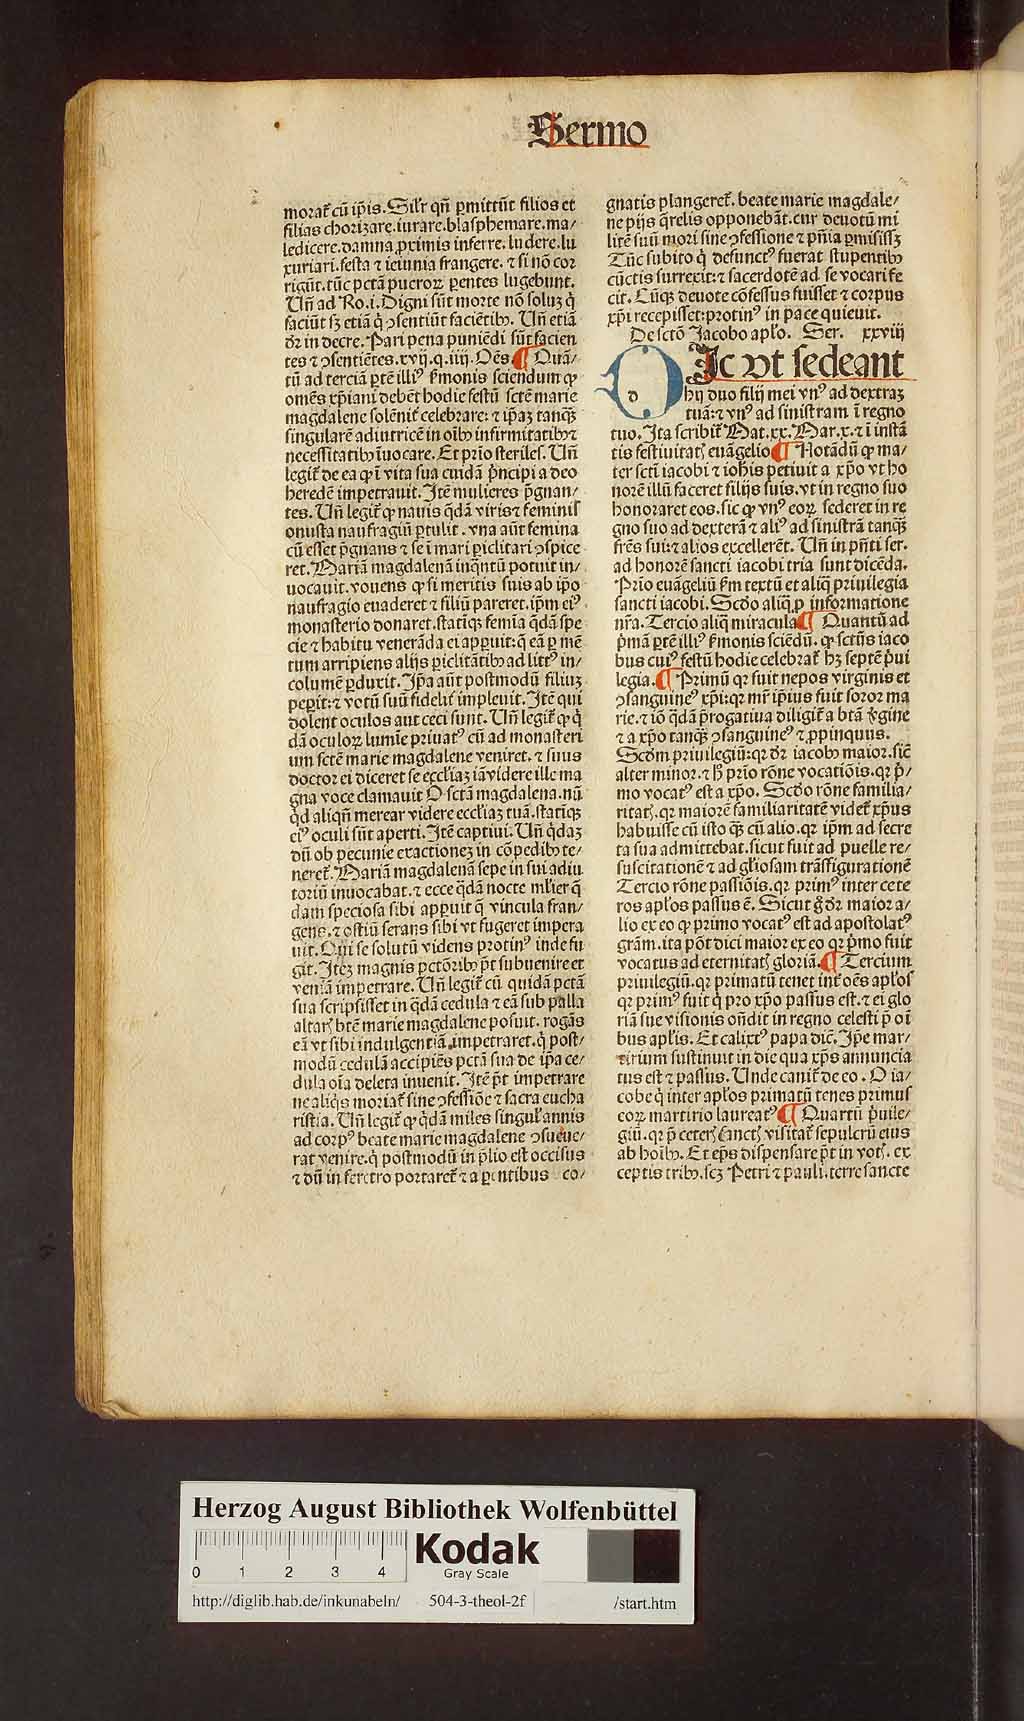 Sermo
morat᷑ cū ip̄is. Silr̄ qn̄ ꝑmittūt filios et
filias chorizare. iurare. blasphemare. ma/
ledicere. damna ꝓximis inferre. ludere. lu
xuriari. festa ⁊ ieiunia frangere. ⁊ si nō cor
rigūt. tūc pctā pueroꝝ ꝑentes lugebunt.
Un̄ ad Ro. i. Digni sūt morte nō soluꝫ q̇
faciūt sꝫ etiā q̇ ꝯsentiūt faciētibꝰ. Un̄ etiā
dr̄ in decre. Pari pena puniēdi sūt facien
tes ⁊ ꝯsentiētes. xvij. q. iiij. Oēs. ¶ Quā/
tū ad terciā ꝑtē illiꝰ ẜmonis sciendum ꝙ
omēs xp̄iani debēt hodie festū scte marie
magdalene solēnit᷑ celebrare: ⁊ ip̄aꝫ tanqꝫ̄
singularē adiutricē in oībꝰ infirmitatibꝰ ⁊
necessitatibꝰ īuocare. Et prīo steriles. Un̄
legit᷑ de ea ꝙ ī vita sua cuidā pn̄cipi a deo
heredē impetrauit. Itē mulieres p̄gnan/
tes. Un̄ legit᷑ ꝙ nauis q̄dā viris ⁊ feminis
onusta naufragiū ꝑtulit. vna aūt femina
cū esset p̄gnans ⁊ se ī mari ꝑiclitari ꝯspice
ret. Mariā magdalenā inqͣntū potuit in/
uocauit. vouens ꝙ si meritis suis ab ip̄o
naufragio euaderet ⁊ filiū pareret. ip̄m eiꝰ
monasterio donaret. statiqꝫ femīa q̄dā spe
cie ⁊ habitu venerāda ei apꝑuit: q̄ eā ꝑ mē
tum arripiens alijs ꝑiclitātibꝰ ad littꝰ in/
columē ꝑduxit. Ip̄a aūt postmodū filiuꝫ
peꝑit: ⁊ votū suū fidelit᷑ impleuit. Itē qui
dolent oculos aut ceci sunt. Un̄ legit᷑ ꝙ q̇
dā oculoꝝ lumīe priuatꝰ cū ad monasteri
um sctē marie magdalene veniret. ⁊ suus
doctor ei diceret se eccl̄iaꝫ iā videre ille ma
gna voce clamauit O sctā magdalena. nū
q̇d aliqn̄ merear videre eccl̄iaꝫ tuā. statiqꝫ
eiꝰ oculi sūt aperti. Itē captiui. Un̄ q̇daꝫ
dū ob pecunie exactionez in cōpedibꝰ te/
neret᷑. Mariā magdalenā sepe in sui adiu
toriū inuocabat. ⁊ ecce q̄dā nocte mlier q̄
dam speciosa sibi apꝑuit q̄ vincula fran/
gens. ⁊ ostiū serans sibi vt fugeret impera
uit. Qui se solutū videns protinꝰ inde fu
git. Iteꝫ magnis pctōribꝰ pt̄ subuenire et
veniā impetrare. Un̄ legit᷑ cū quidā pctā
sua scripsisset in q̄dā cedula ⁊ eā sub palla
altarꝭ btē marie magdalene posuit. rogās
eā vt sibi indulgentiā impetraret. q̇ post/
modū cedulā accipiēs pctā sua de ip̄a ce/
dula oīa deleta inuenit. Itē pt̄ impetrare
ne aliq̇s moriat᷑ sine ꝯfessiōe ⁊ sacra eucha
ristia. Un̄ legit᷑ ꝙ q̇dā miles singulꝭ annis
ad corpꝰ beate marie magdalene ꝯsueue/
rat venire. q̇ postmodū in p̄lio est occisus
⁊ dū in feretro portaret᷑ ⁊ a ꝑentibus co/
gnatis plangeret᷑. beate marie magdale/
ne pijs q̄relis opponebāt. cur deuotū mi
litē suū mori sine ꝯfessione ⁊ pn̄ia ꝑmisissꝫ
Tūc subito q̇ defunctꝰ fuerat stupentibꝰ
cūctis surrexit: ⁊ sacerdotē ad se vocari fe
cit. Cūqꝫ deuote cōfessus fuisset ⁊ corpus
xp̄i recepisset: protinꝰ in pace quieuit.
De sctō Jacobo apl̄o. Ser. xxviij
DIc vt sedeant
hij duo filij mei vnꝰ ad dextraꝫ
tuā: ⁊ vnꝰ ad sinistram ī regno
tuo. Ita scribit᷑ Mat. xx. Mar. x. ⁊ ī instā
tis festiuitatꝭ euāgelio ¶ Notādū ꝙ ma/
ter scti iacobi ⁊ ioh̄is petiuit a xp̄o vt ho
norē illū faceret filijs suis. vt in regno suo
honoraret eos. sic ꝙ vnꝰ eoꝝ sederet in re
gno suo ad dexterā ⁊ aliꝰ ad sinistrā tanqꝫ̄
frēs sui: ⁊ alios excellerēt. Un̄ in pn̄ti ser.
ad honorē sancti iacobi tria sunt dicēda.
Prīo euāgeliū ẜm textū ⁊ aliq̄ priuilegia
sancti iacobi. Scdo aliq̄ ꝓ informatione
nr̄a. Tercio aliq̄ miracula ¶ Quantū ad
p̄mā ꝑtē illiꝰ ẜmonis sciēdū. ꝙ sctūs iaco
bus cuiꝰ festū hodie celebrat᷑ hꝫ septē p̄ui
legia. ¶ Primū qꝛ fuit nepos virginis et
ꝯsanguineꝰ xp̄i: qꝛ mr̄ ip̄ius fuit soror ma
rie. ⁊ iō q̄dā p̄rogatiua diligit᷑ a btā v̓gine
⁊ a xp̄o tanqꝫ ꝯsanguineꝰ ⁊ ꝓpinquus.
Scdm priuilegiū: qꝛ dr̄ iacobꝰ maior. sic̄
alter minor. ⁊ h̄ prīo rōne vocatiōis. qꝛ p̄/
mo vocatꝰ est a xp̄o. Scdo rōne familia/
ritatꝭ. qꝛ maiorē familiaritatē videt᷑ xp̄us
habuisse cū isto qꝫ̄ cū alio. qꝛ ip̄m ad secre
ta sua admittebat. sicut fuit ad puelle re/
suscitationē ⁊ ad gl̄iosam trāsfigurationē
Tercio rōne passiōis. qꝛ primꝰ inter cete
ros apl̄os passus ē. Sicut g̊ dr̄ maior a/
lio ex eo ꝙ primo vocatꝰ est ad apostolatꝰ
grām. ita pōt dici maior ex eo qꝛ p̄mo fuit
vocatus ad eternitatꝭ gloriā. ¶ Tercium
priuilegiū. qꝛ primatū tenet int᷑ oēs apl̄os
qꝛ primꝰ fuit q̇ pro xp̄o passus est. ⁊ ei glo
riā sue visionis on̄dit in regno celesti p̄ oī
bus apl̄is. Et calixtꝰ papa dic̄. Ip̄e mar/
tirium sustinuit in die qua xp̄s annuncia
tus est ⁊ passus. Unde canit᷑ de eo. O ia/
cobe q̇ inter apl̄os primatū tenes primus
eoꝝ martirio laureatꝰ ¶ Quartū p̄uile/
giū. qꝛ p̄ ceterꝭ sanctꝭ visitat᷑ sepulcrū eius
ab hoībꝰ. Et ep̄s dispensare pt̄ in votꝭ. ex
ceptis tribꝰ. scꝫ Petri ⁊ pauli. terre sancte
Herzog August Bibliothek Wolfenbüttel
0 1 2 3 4
Kodak
Gray Scale
http://diglib.hab.de/inkunabeln/ 504-3-theol-2f /start.htm